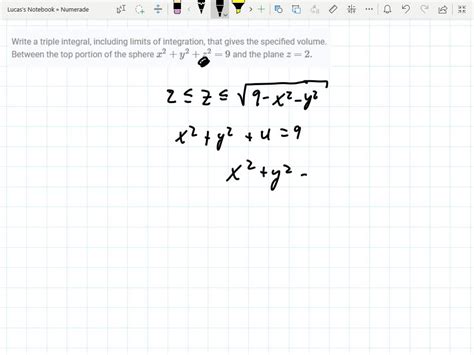 Lucas's Notebook » Numerade
Write a triple integral, including limits of integration, that gives the specified volume.
Between the top portion of the sphere x² + y² + z² = 9 and the plane z = 2.
2 ≤ z ≤ √(9-x²-y²)
x² + y² + 4 = 9
x² + y² -